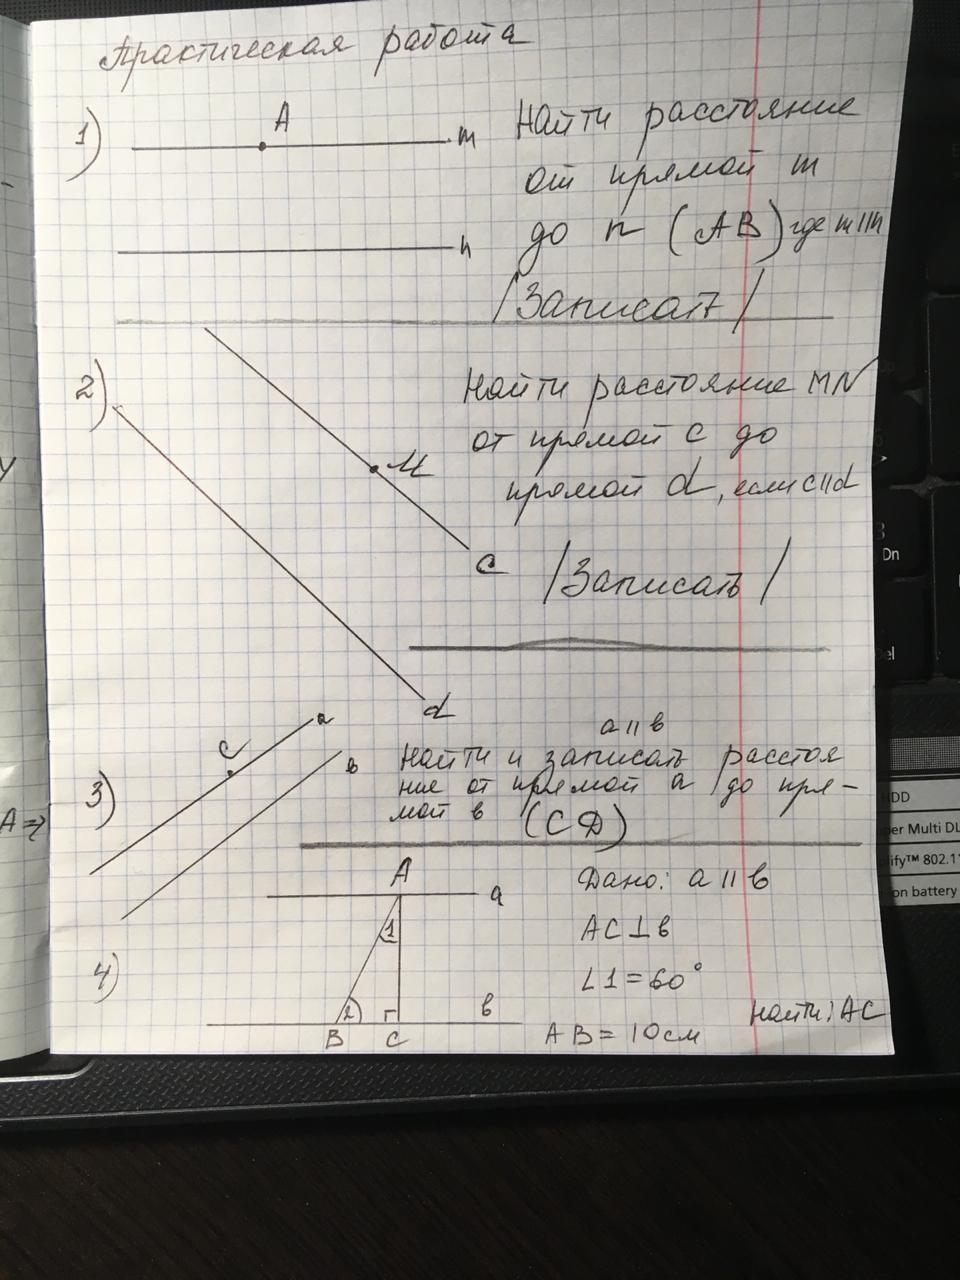 Практическая работа
1)
A
m
n
Найти расстояние
от прямой m
до n (AB) где m||n
/Записать/
2)
M
c
d
Найти расстояние MN
от прямой c до
прямой d, если c||d
/Записать/
3)
C
a
в
a || в
Найти и записать расстоя
ние от прямой a до пря-
мой в (СД)
4)
A
a
1
2
B
C
в
Дано: a || в
AC⊥в
∠1=60°
AB = 10см
Найти: AC
A ⇒
Dn
el
HDD
er Multi DL
ify™ 802.1
on battery